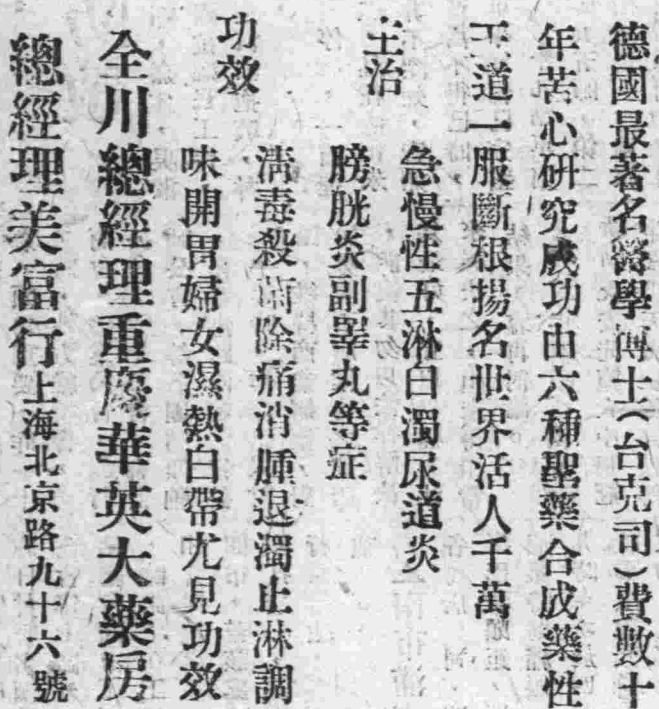 德國最著名醫學博士（台克司）費數十
年苦心研究成功由六種聖藥合成藥性
王道一服斷根揚名世界活人千萬
主治
急慢性五淋白濁尿道炎
膀胱炎副睾丸等症
功效
淸毒殺菌除痛消腫退濁止淋調
味開胃婦女濕熱白帶尤見功效
全川總經理重慶華英大藥房
總經理美富行上海北京路九十六號